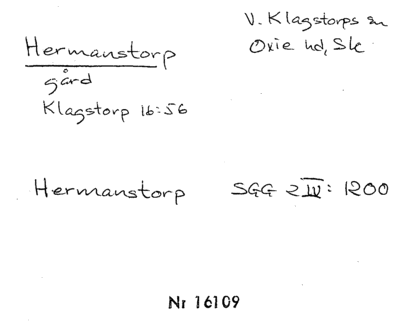 Hermanstorp
gård
Klagstorp 16:56
V. Klagstorps sn
Oxie hd, Sk
Hermanstorp SGG 2 IV: 1200
Nr 16109